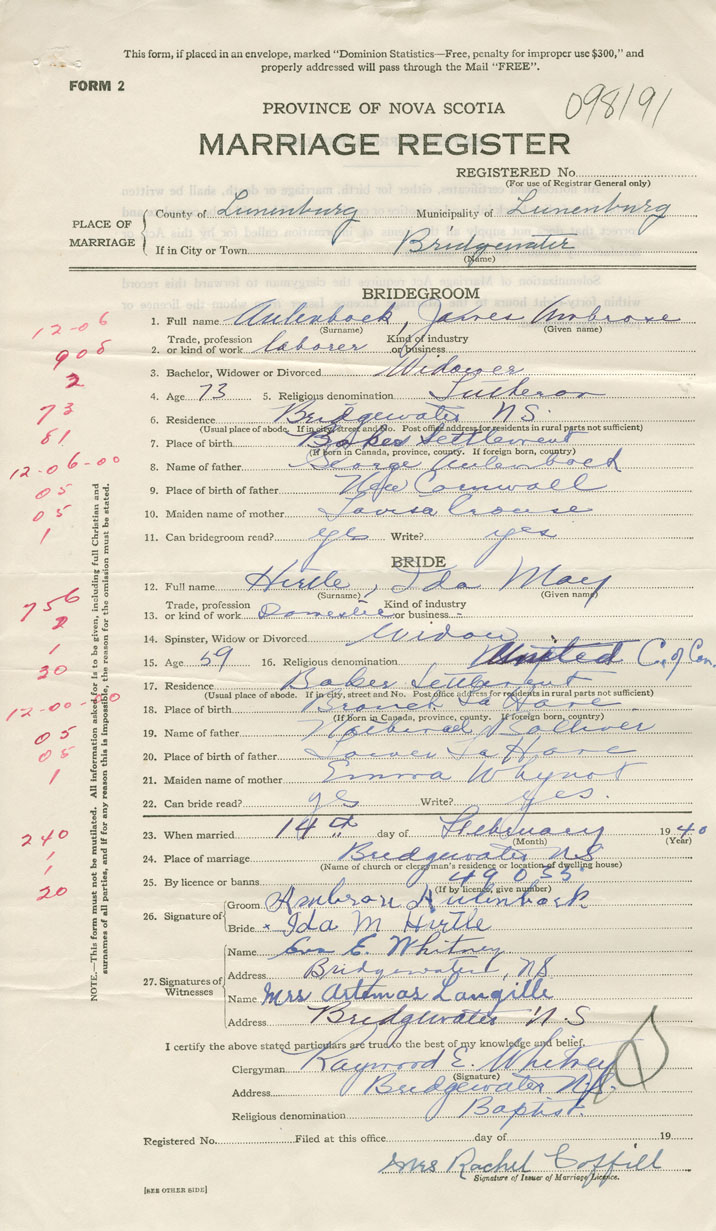 This form, if placed in an envelope, marked "Dominion Statistics—Free, penalty for improper use $300," and
properly addressed will pass through the Mail "FREE".
FORM 2
098191
PROVINCE OF NOVA SCOTIA
MARRIAGE REGISTER
REGISTERED No.
(For use of Registrar General only)
PLACE OF MARRIAGE
County of Lunenburg Municipality of Lunenburg
If in City or Town Bridgewater
(Name)
BRIDEGROOM
12-06
1. Full name Aulenback, James Ambrose
(Surname) (Given name)
908
Trade, profession Kind of industry
2. or kind of work laborer or business
2
3. Bachelor, Widower or Divorced Widower
73
4. Age 73 5. Religious denomination Lutheran
81
6. Residence Bridgewater N.S.
(Usual place of abode. If in city, street and No. Post office address for residents in rural parts not sufficient)
7. Place of birth Bakes Settlement
(If born in Canada, province, county. If foreign born, country)
12-06-00
8. Name of father George Aulenback
05
9. Place of birth of father New Cornwall
05
10. Maiden name of mother Louisa Crouse
1
11. Can bridegroom read? yes Write? yes
BRIDE
756
12. Full name Hirtle, Ida May
(Surname) (Given name)
2
Trade, profession Kind of industry
13. or kind of work Domestic or business
1
14. Spinster, Widow or Divorced Widow
20
15. Age 59 16. Religious denomination United C. of Can.
17. Residence Baker Settlement
(Usual place of abode. If in city, street and No. Post office address for residents in rural parts not sufficient)
12-00-00
18. Place of birth Branch La Have
(If born in Canada, province, county. If foreign born, country)
05
19. Name of father Bolliver
05
20. Place of birth of father Lower La Have
1
21. Maiden name of mother Emma Whynot
22. Can bride read? yes Write? yes.
240
23. When married 14th day of February 1940
(Month) (Year)
1
24. Place of marriage Bridgewater N.S
(Name of church or clergyman's residence or location of dwelling house)
1
25. By licence or banns 49035
(If by licence, give number)
20
26. Signature of Groom Ambrose Aulenback
Bride × Ida M Hirtle
27. Signatures of Witnesses
Name Eva E. Whitney
Address Bridgewater, N.S.
Name Mrs Artemas Langille
Address Bridgewater N.S
I certify the above stated particulars are true to the best of my knowledge and belief.
Clergyman Raymond E. Whitney
(Signature)
Address Bridgewater N.S.
Religious denomination Baptist.
Registered No. Filed at this office day of 19
Mrs Rachel Coffill
Signature of Issuer of Marriage Licence.
[SEE OTHER SIDE]
NOTE.—This form must not be mutilated. All information asked for is to be given, including full Christian and
surnames of all parties, and if for any reason this is impossible, the reason for the omission must be stated.